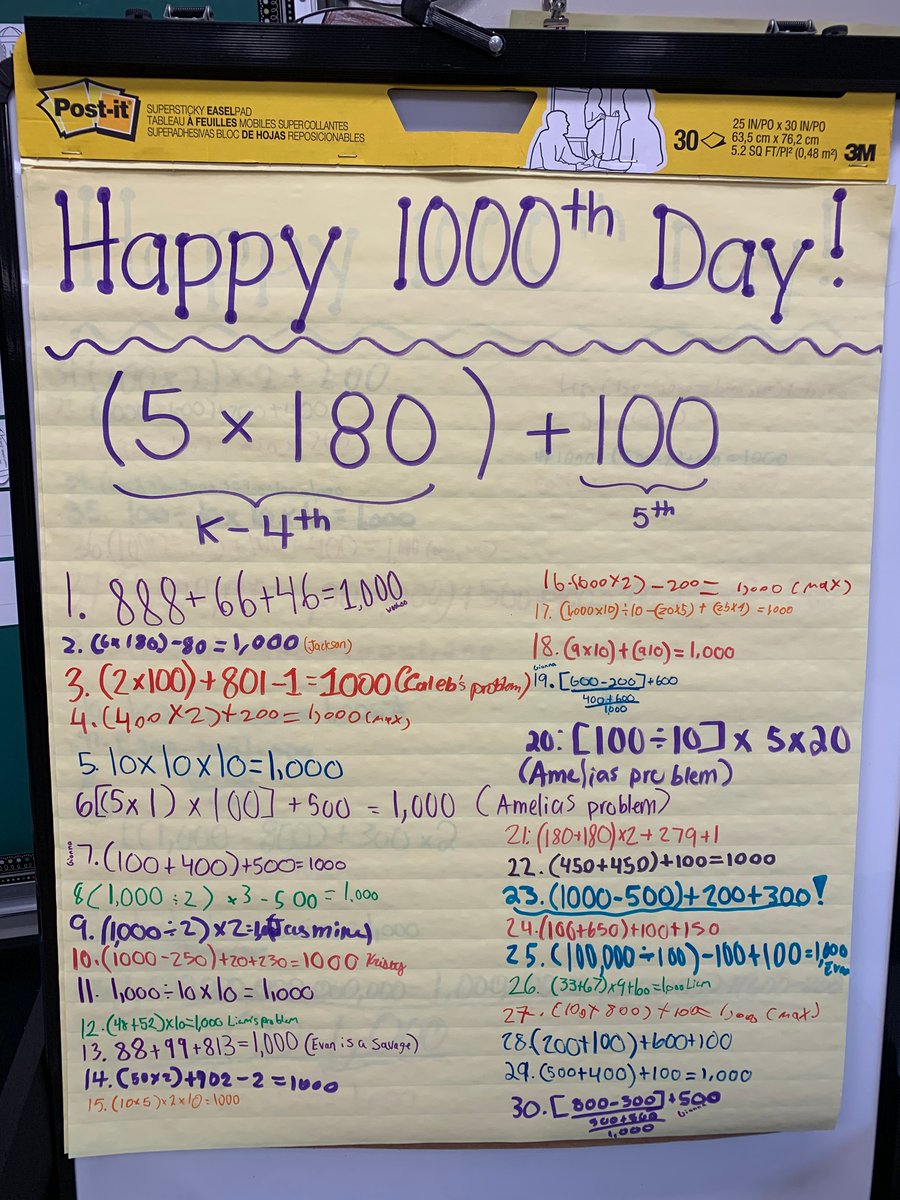 Post-it
SUPERSTICKY EASELPAD
TABLEAU À FEUILLES MOBILES SUPERCOLLANTES
SUPERADHESIVAS BLOC DE HOJAS REPOSICIONABLES
30
25 IN/PO x 30 IN/PO
63,5 cm x 76,2 cm
5.2 SQ FT/PI² (0,48 m²)
3M
Happy 1000th Day!
(5 x 180) + 100
K-4th
5th
1. 888+66+46=1,000
2. (6x180)-80=1,000 (Jackson)
3. (2x100)+801-1=1000 (Caleb's problem)
4. (400x2)+200=1,000 (max)
5. 10x10x10=1,000
6[(5x1)x100]+500 = 1,000 (Amelias problem)
Gianna
7. (100+400)+500=1000
8(1,000÷2) x3-500=1,000
9. (1,000÷2)x2= (Jasmine)
10. (1000-250)+20+230=1000 Kristy
11. 1,000÷10x10=1,000
12. (48+52)x10=1,000 Liam's problem
13. 88+99+813=1,000 (Evan is a Savage)
14. (50x2)+902-2=1000
15. (10x5)x2x10=1000
16. (600x2)-200= 1,000 (max)
17. (1,000x10)÷10-(20x5)+(25x4)=1000
18. (9x10)+(910)=1,000
Gianna
19. [600-200]+600
400+600
1,000
20: [100÷10] x 5x20
(Amelias problem)
21. (180+180)x2+279+1
22. (450+450)+100=1000
23. (1000-500)+200+300!
24. (100+650)+100+150
25. (100,000÷100)-100+100=1,000
Evan
26. (33+67)x9+100=1,000 Liam
27. 800)+100= 1,000 (max)
28. (200+100)+600+100
29. (500+400)+100=1,000
30. [800-300]+500
Gianna
500+500
1,000